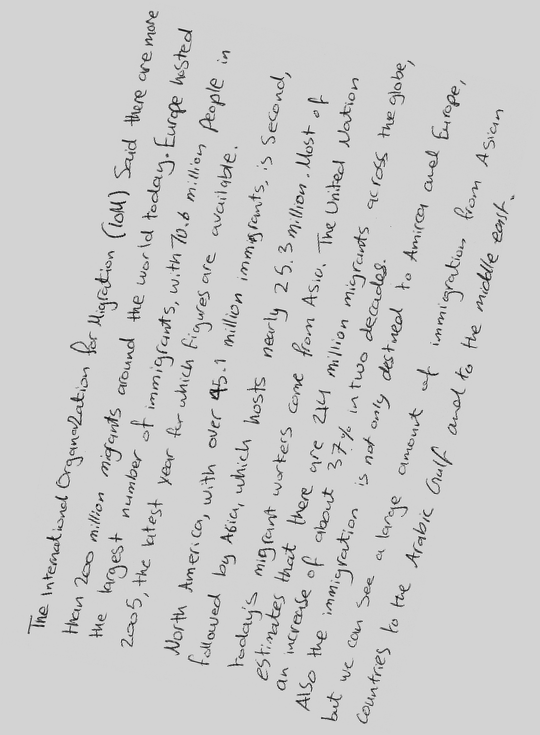 The International Organazation for Migration (IOM) Said there are more
than 200 million migrants around the world today. Europe hosted
the largest number of immigrants, with 70.6 million People in
2005, the latest year for which figures are available.
North America, with over 45.1 million immigrants, is Second,
followed by Asia, which hosts nearly 25.3 million. Most of
today's migrant workers come from Asia. The United Nation
estimates that there are 214 million migrants across the globe,
an increase of about 37% in two decades.
Also the immigration is not only destined to Amirca and Europe,
but we can see a large amount of immigration from Asian
countries to the Arabic Gulf and to the middle east.